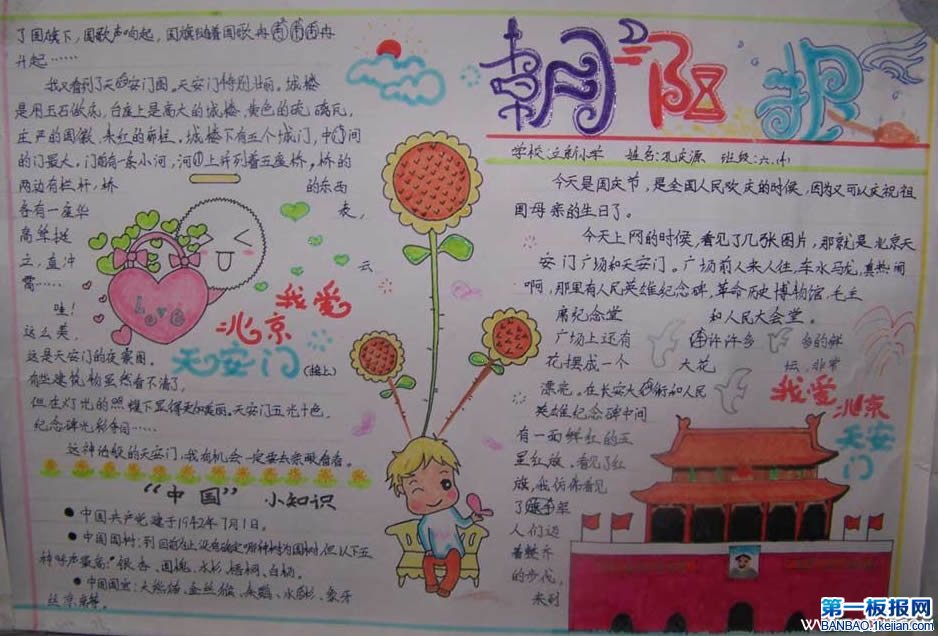 朝阳报
学校:立新小学 姓名:孔庆源 班级:六.(4)
今天是国庆节,是全国人民欢庆的时候,因为又可以庆祝祖
国母亲的生日了。
今天上网的时候,看见了几张图片,那就是北京天
安门广场和天安门。广场前人来人往,车水马龙,真热闹
啊,那里有人民英雄纪念碑,革命历史博物馆,毛主
席纪念堂 和人民大会堂。
广场上还有 许许多多 多的鲜
花摆成一个 大花 坛,非常
漂亮。在长安大街和人民
英雄纪念碑中间
有一面鲜红的五
星红旗。看见了红
旗,我仿佛看见
了解放军
人们迈
着整齐
的步伐,
来到
我爱
北京
天安
门
了国旗下,国歌声响起,国旗随着国歌冉冉
升起……
我又看到了天安门图。天安门特别壮丽。城楼
是用玉石做底,台座上是高大的城楼,黄色的琉璃瓦,
庄严的国徽,朱红的廊柱。城楼下有五个城门,中间
的门最大。门前有一条小河,河上并列着五座桥。桥的
两边有栏杆,桥 的东西
各有一座华 表,
高耸挺
立,直冲 云
霄……
哇!
这么美,
这是天安门的夜景图。
有些建筑物虽然看不清了,
但在灯光的照耀下显得更加美丽。天安门五光十色,
纪念碑光彩夺目……
这神话般的天安门,我有机会一定要去亲眼看看。
Love
我爱
北京
天安门
(接上)
“中国”小知识
● 中国共产党建于1942年7月1日。
● 中国国树:到目前为止没有确定哪种树为国树,但以下五
种呼声最高:银杏、国槐、水杉、梧桐、白杨。
● 中国国宝:大熊猫、金丝猴、朱鹮、水杉、象牙
第一板报网
WWW.BANBAO.1kejian.com